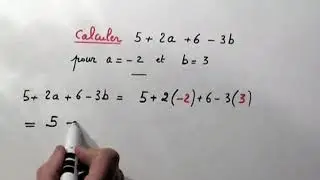 Calculer 5 + 2a + 6 - 3b
pour a = -2 et b = 3
5 + 2a + 6 - 3b = 5 + 2(-2) + 6 - 3(3)
= 5 -